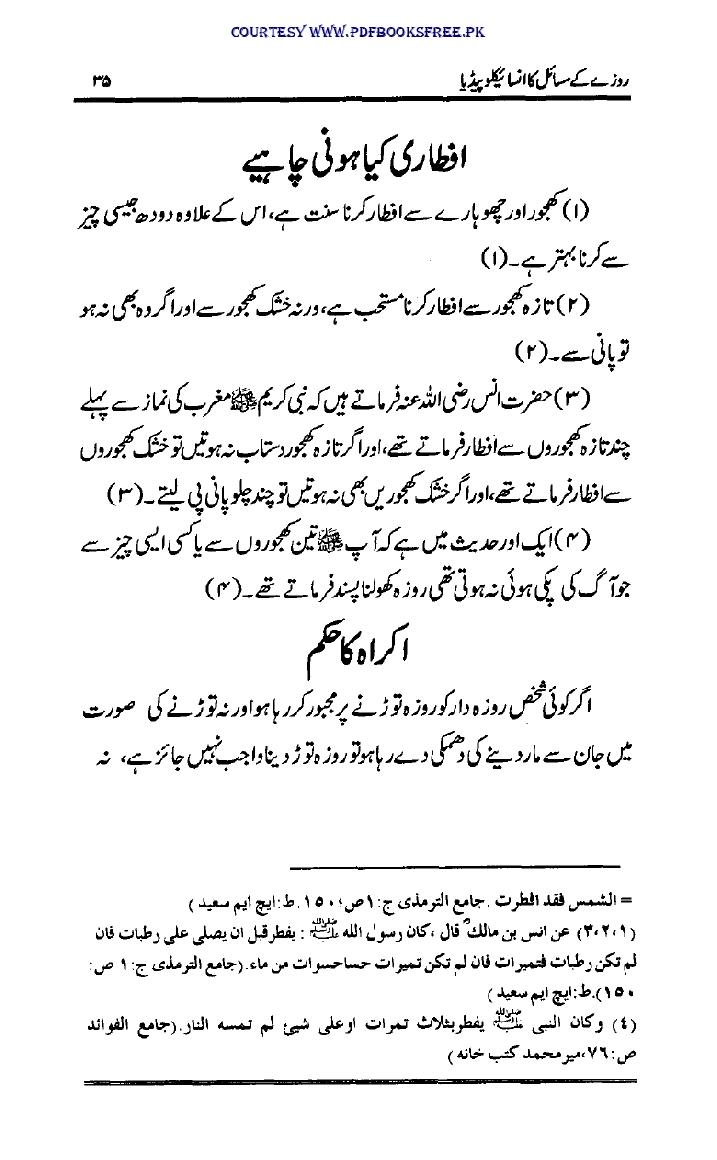 COURTESY WWW.PDFBOOKSFREE.PK
روزے کے مسائل کا انسائیکلوپیڈیا ۳۵
افطاری کیا ہونی چاہیے
(۱) کھجور اور چھوہارے سے افطار کرنا سنت ہے، اس کے علاوہ دودھ جیسی چیز
سے کرنا بہتر ہے۔ (۱)
(۲) تازہ کھجور سے افطار کرنا مستحب ہے، ورنہ خشک کھجور سے اور اگر وہ بھی نہ ہو
تو پانی سے۔ (۲)
(۳) حضرت انس رضی اللہ عنہ فرماتے ہیں کہ نبی کریم ﷺ مغرب کی نماز سے پہلے
چند تازہ کھجوروں سے افطار فرماتے تھے، اور اگر تازہ کھجور دستاب نہ ہوتیں تو خشک کھجوروں
سے افطار فرماتے تھے، اور اگر خشک کھجوریں بھی نہ ہوتیں تو چند چلو پانی پی لیتے۔ (۳)
(۴) ایک اور حدیث میں ہے کہ آپ ﷺ تین کھجوروں سے یا کسی ایسی چیز سے
جو آگ کی پکی ہوئی نہ ہوتی تھی روزہ کھولنا پسند فرماتے تھے۔ (۴)
اکراہ کا حکم
اگر کوئی شخص روزہ دار کو روزہ توڑنے پر مجبور کر رہا ہو اور نہ توڑنے کی صورت
میں جان سے مار دینے کی دھمکی دے رہا ہو تو روزہ توڑ دینا واجب نہیں جائز ہے، نہ
= الشمس فقد افطرت . جامع الترمذی ج: ۱ ص: ۱۵۰ . ط: ایچ ایم سعید )
(۳،۲،۱) عن انس بن مالکؓ قال ، کان رسول اللہ ﷺ : یفطر قبل ان یصلی علی رطبات فان
لم تکن رطبات فتمیرات فان لم تکن تمیرات حسا حسوات من ماء. (جامع الترمذی ج: ۱ ص:
۱۵۰). ط: ایچ ایم سعید )
(٤) وکان النبی ﷺ یفطر بثلاث تمرات او علی شیئ لم تمسه النار. (جامع الفوائد
ص: ۷٦، میر محمد کتب خانه )